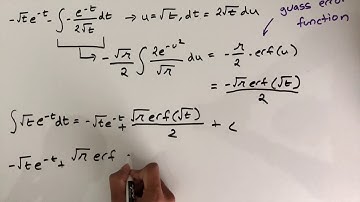 -√t e^-t - ∫ - e^-t/2√t dt → u = √t, dt = 2√t du
guass error function
→ - √π/2 ∫ 2e^-u²/√π du = - √π/2 · erf(u)
= - √π erf(√t)/2
∫ √t e^-t dt = -√t e^-t + √π erf(√t)/2 + c
-√t e^-t + √π erf